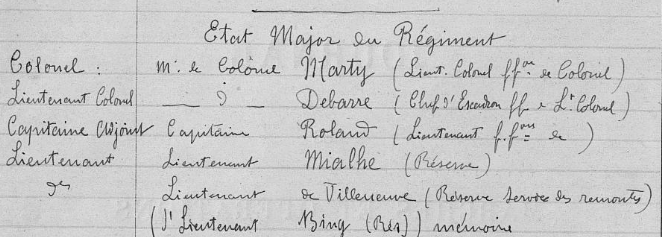 Etat Major du Régiment
Colonel : Mr. le Colonel Marty (Lieut. Colonel ffons de Colonel)
Lieutenant Colonel — d° — Debarre (Chef d'Escadron ff de Lt Colonel)
Capitaine Adjoint Capitaine Roland (Lieutenant f.fons de )
Lieutenant Lieutenant Mialhe (Réserve)
d° Lieutenant de Villeneuve (Réserve Service des remontes)
(S/ Lieutenant Bing (Rés)) mémoire